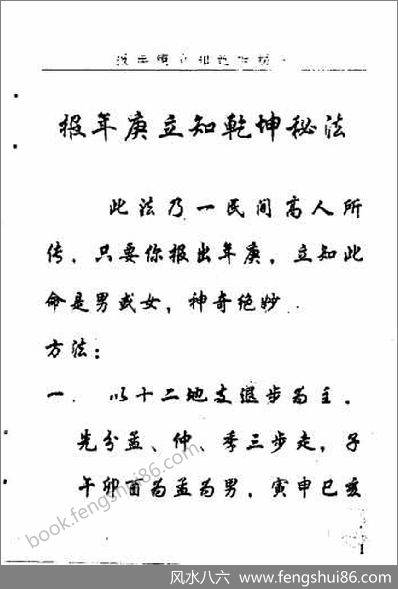 报年庚立知乾坤秘法
此法乃一民间高人所
传，只要你报出年庚，立知此
命是男或女，神奇绝妙．
方法：
一． 以十二地支退步为主．
先分孟、仲、季三步走，子
午卯酉为孟为男，寅申巳亥
book.fengshui86.com
1
风水八六 www.fengshui86.com